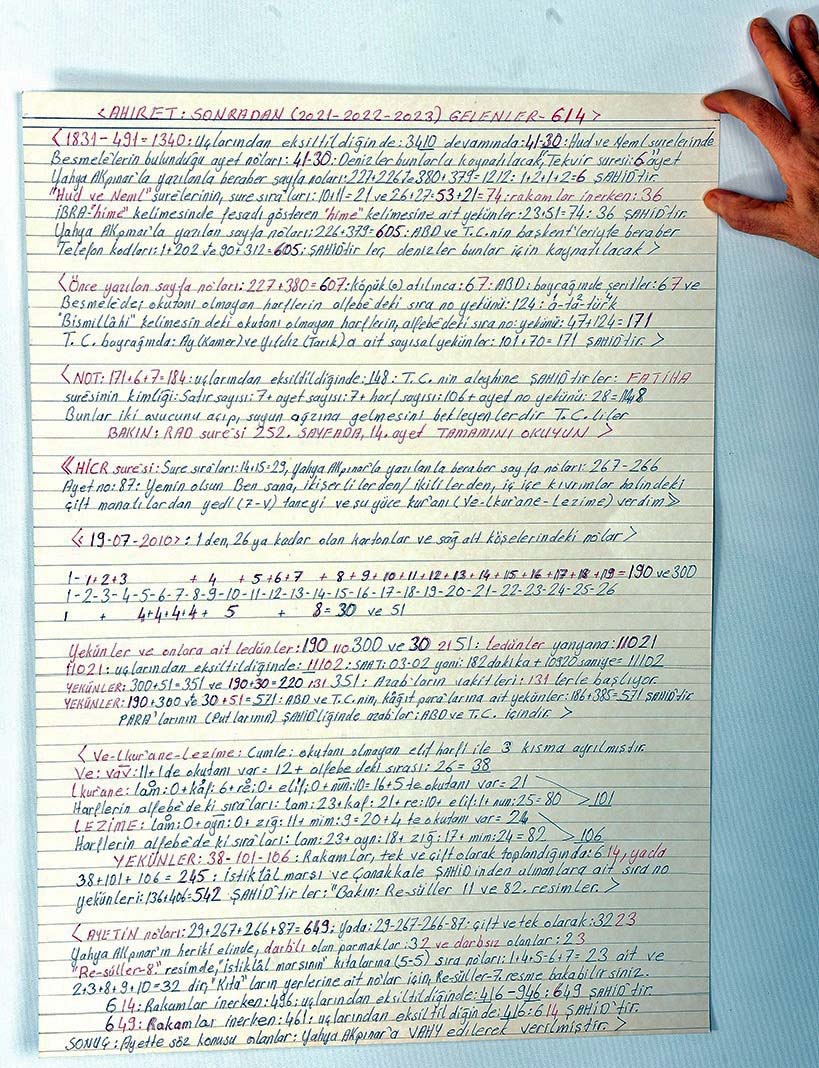 <AHIRET: SONRADAN (2021-2022-2023) GELENLER-614>
<1831-491=1340: Uçlarından eksiltildiğinde: 3410 devamında: 41-30: Hud ve Neml surelerinde
Besmele'lerin bulunduğu ayet no'ları: 41-30: Denizler bunlarla kaynatılacak, Tekvir suresi: 6 ayet
Yahya Akpınar'la yazılanla beraber sayfa no'ları: 227+226 ve 380+379=1212: 1+2+1+2=6 ŞAHİD'tir.
"Hud ve Neml" surelerinin, sure sıra'ları: 10+11=21 ve 26+27=53+21=74: rakamlar inerken: 36
İBRA-"hime" kelimesinde fesadı gösteren "hime" kelimesine ait yekünler: 23+51=74: 36 ŞAHİD'tir.
Yahya Akpınar'la yazılan sayfa no'ları: 226+379=605: ABD ve T.C.nin başkent'leriyle beraber
Telefon kodları: 1+202 ve 90+312=605: ŞAHİD'tir ler, denizler bunlar için kaynatılacak>
<Önce yazılan sayfa no'ları: 227+380=607: köpük (0) atılınca: 67: ABD: bayrağında şeritler: 67 ve
Besmele'de, okutanı olmayan harflerin alfebe'deki sıra no yekünü: 124: a1-ta2-türk4
"Bismillâhi" kelimesin deki okutanı olmayan harflerin, alfebe'deki sıra no: yekünü: 47+124=171
T.C. bayrağında: Ay (Kamer) ve Yıldız (Tarık)a ait sayısal yekünler: 101+70=171 ŞAHİD'tir.>
<NOT: 171+6+7=184: uçlarından eksiltildiğinde: 148: T.C. nin aleyhine ŞAHİD'tirler: FATİHA
suresinin kimliği: Satır sayısı: 7+ ayet sayısı: 7+ harf sayısı: 106+ ayet no yekünü: 28=148
Bunlar iki avucunu açıp, suyun ağzına gelmesini bekleyenlerdir T.C. liler
BAKIN: RAD suresi 252. SAYFADA, 14. ayet TAMAMINI OKUYUN>
<<HİCR suresi: Sure sıra'ları: 14+15=29, Yahya Akpınar'la yazılanla beraber sayfa no'ları: 267-266
Ayet no: 87: Yemin olsun Ben sana, ikişerlilerden/ ikililerden, iç içe kıvrımlar halindeki
çift manalılardan yedi (7-v) taneyi ve şu yüce kur'anı (Ve-lkur'ane-Lezime) verdim>>
<<19-07-2010>: 1 den, 26 ya kadar olan kartonlar ve sağ alt köşelerindeki no'lar>
1-1+2+3 + 4 + 5+6+7 + 8+9+10+11+12+13+14+15+16+17+18+19=190 ve 300
1-2-3-4-5-6-7-8-9-10-11-12-13-14-15-16-17-18-19-20-21-22-23-24-25-26
1 + 4+4+4+4+ 5 + 8=30 ve 51
Yekünler ve onlara ait ledünler: 190 110 300 ve 30 21 51: ledünler yanyana: 11021
11021: uçlarından eksiltildiğinde: 11102: SAAT: 03-02 yani: 182 dakika + 10920 saniye= 11102
YEKÜNLER: 300+51=351 ve 190+30=220 131 351: Azab'ların vakitleri: 131 lerle başlıyor.
YEKÜNLER: 190+300 ve 30+51=571: ABD ve T.C.nin, kâğıt para'larına ait yekünler: 186+385=571 ŞAHİD'tir
PARA'larının (Put'larının) ŞAHİD'liğinde azab'lar: ABD ve T.C. içindir.>
<Ve-lkur'ane-Lezime: Cümle: okutanı olmayan elif harfi ile 3 kısma ayrılmıştır.
Ve: vav: 11+1 de okutanı var= 12+ alfebe deki sırası: 26=38
lkur'ane: lâm: 0+kâf: 6+re: 0+ elif: 0+nun: 10=16+5 te okutanı var= 21
Harflerin alfebe'deki sıra'ları: lam: 23+kaf: 21+re: 10+ elif: 1+nun: 25=80 > 101
LEZİME: lâm: 0+ayn: 0+ zığ: 11+ mim: 9=20+4 te okutanı var= 24
Harflerin alfebe'de ki sıra'ları: lam: 23+ayn: 18+zığ: 17+mim: 24=82 106
YEKÜNLER: 38-101-106: Rakamlar, tek ve çift olarak toplandığında: 614, yada
38+101+106=245: İstiklâl marşı ve Çanakkale ŞAHİD'inden alınanlara ait sıra no
yekünleri: 136+406=542 ŞAHİD'tir ler: "Bakın: Re-süller 11 ve 82. resimler.>
<AYETİN no'ları: 29+267+266+87=649: yada: 29-267-266-87: çift ve tek olarak: 3223
Yahya Akpınar'ın heriki elinde, darblı olan parmaklar: 32 ve darbsız olanlar: 23
"Re-süller-8." resimde, "istiklâl marşının" kıta'larına (5-5) sıra no'ları: 1+4+5+6+7=23 ait ve
2+3+8+9+10=32 dir, "Kıta" ların yerlerine ait no'lar için, Re-süller-7. resme bakabilirsiniz.
614: Rakamlar inerken: 496: uçlarından eksiltildiğinde: 416-946: 649 ŞAHİD'tir.
649: Rakamlar inerken: 461: uçlarından eksiltildiğinde: 416: 614 ŞAHİD'tir.
SONUÇ: Ayette söz konusu olanlar: Yahya Akpınar'a VAHY edilerek verilmiştir.>